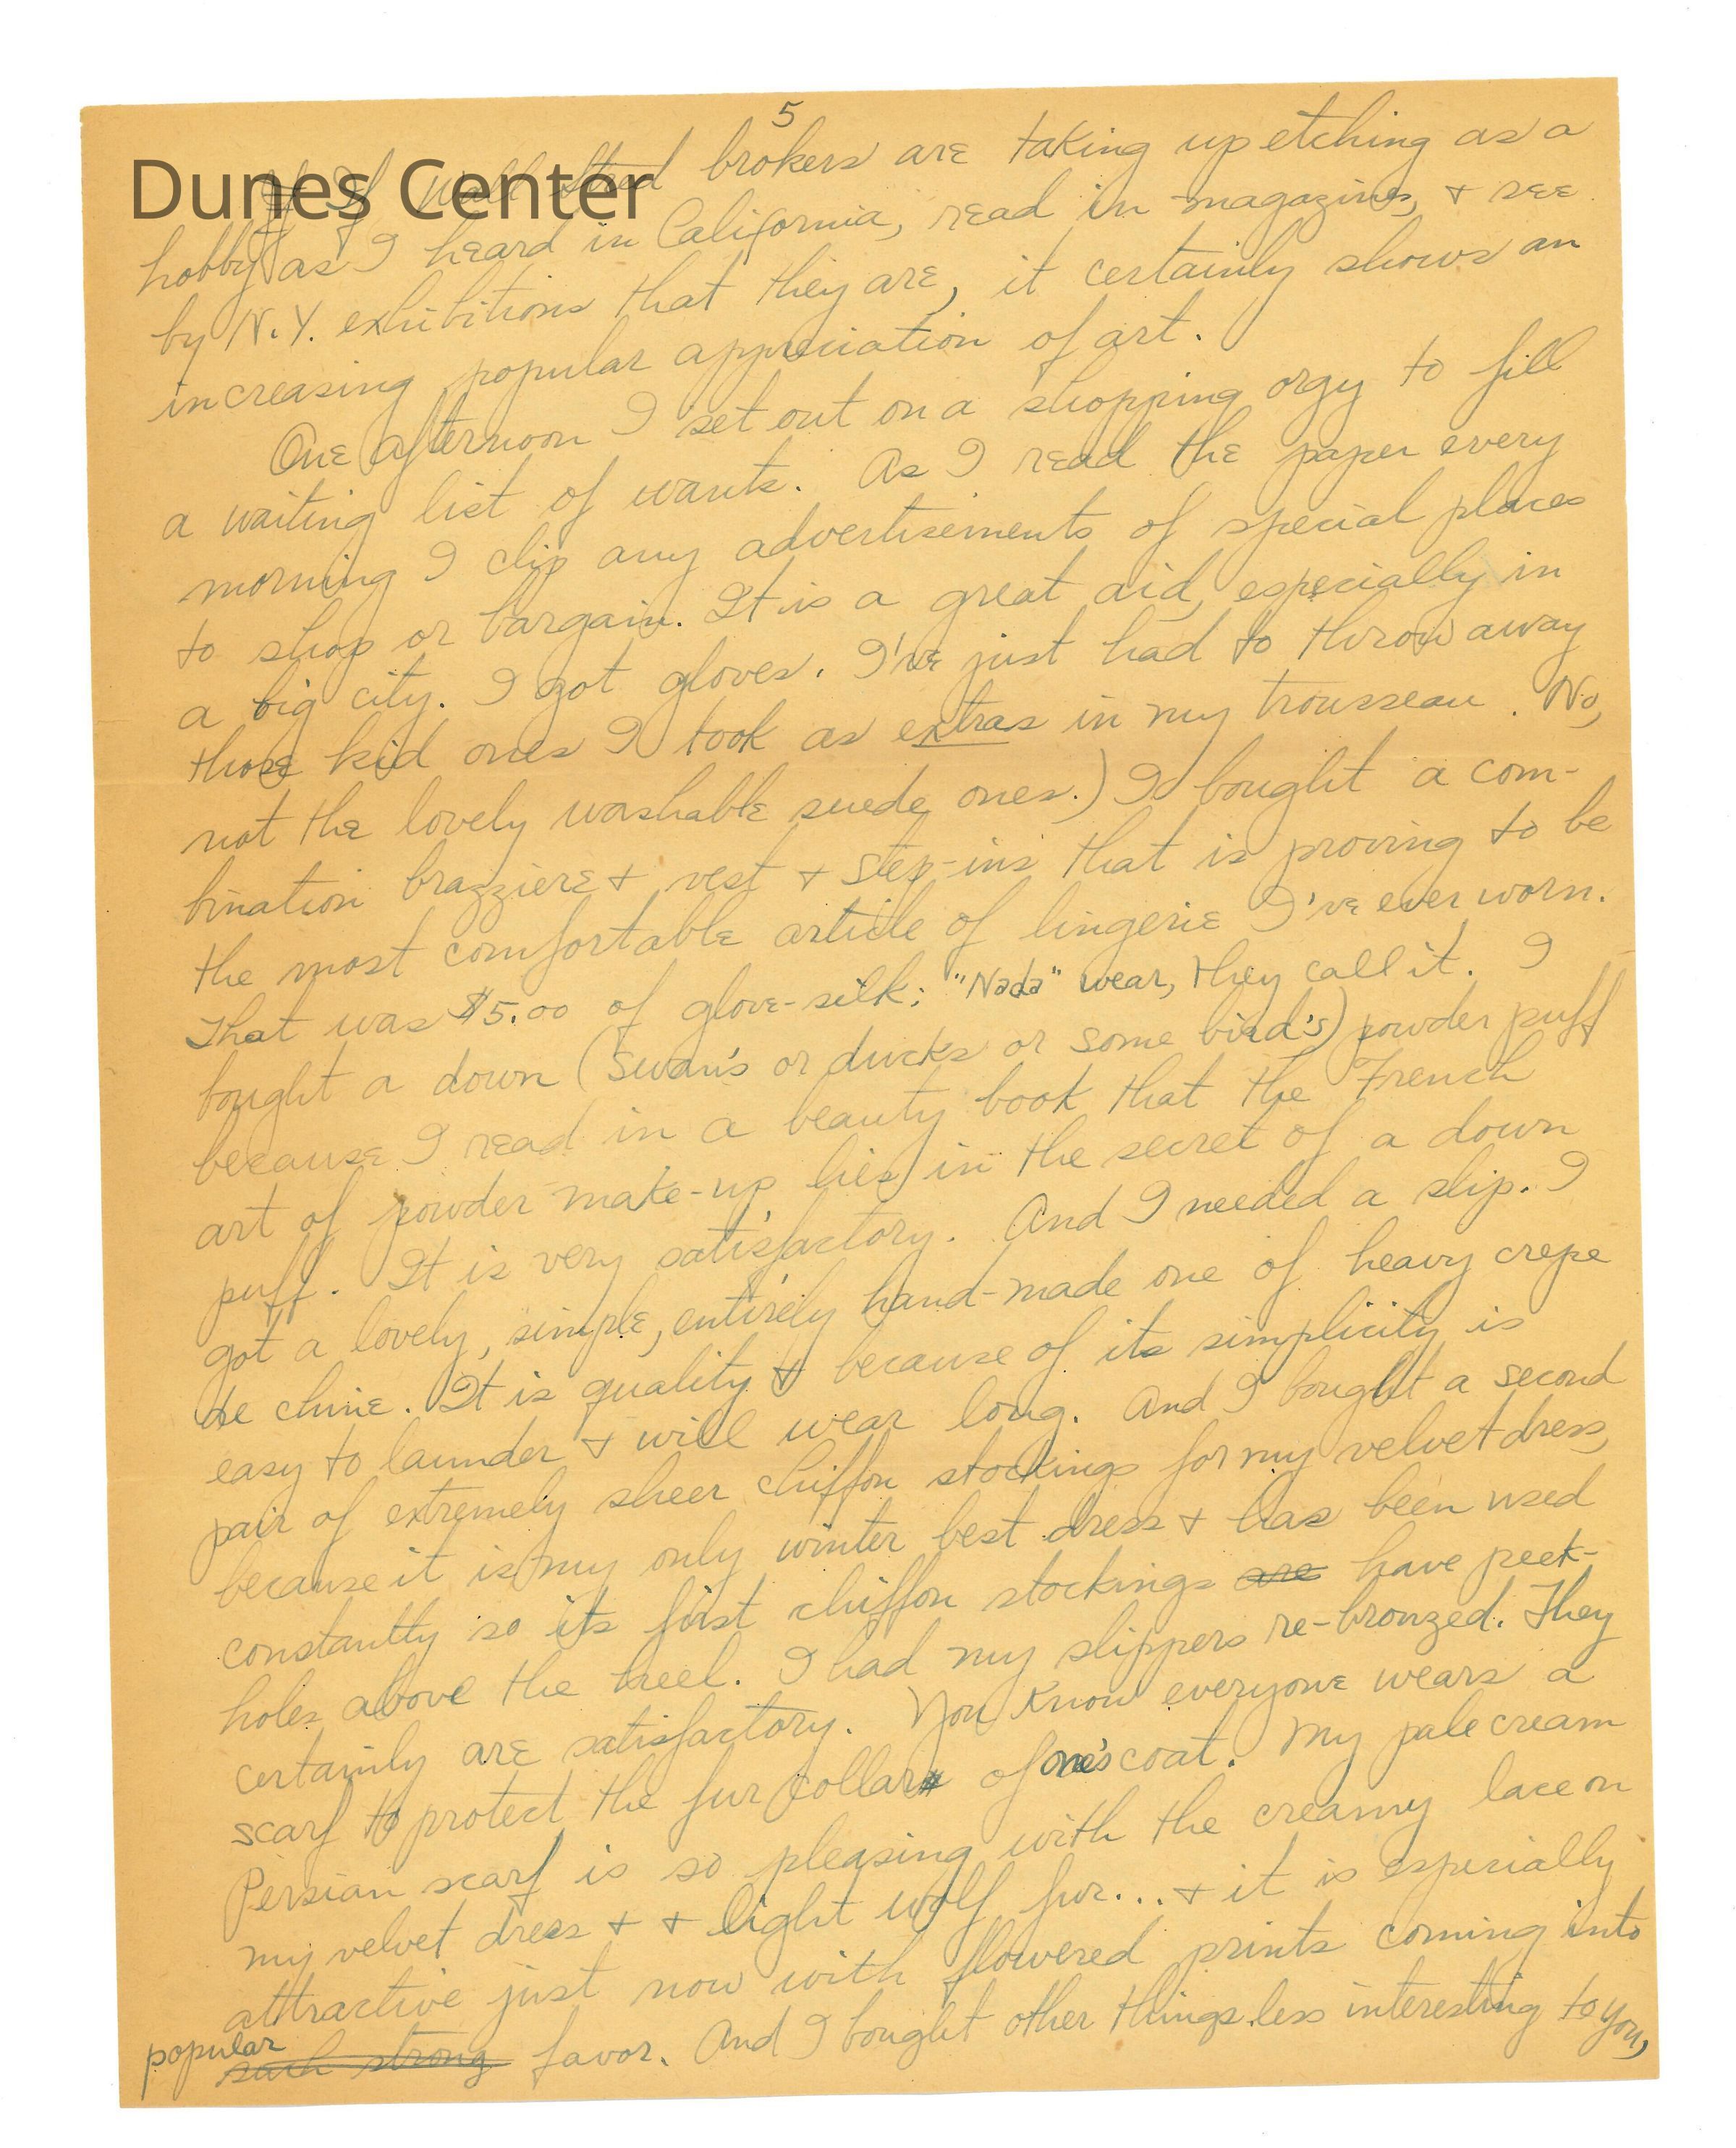 5
Dunes Center
If Wall Street brokers are taking up etching as a
hobby as I heard in California, read in magazines, & see
by N.Y. exhibitions that they are, it certainly shows an
increasing popular appreciation of art.
One afternoon I set out on a shopping orgy to fill
a waiting list of wants. As I read the paper every
morning I clip any advertisements of special places
to shop or bargain. It is a great aid, especially in
a big city. I got gloves. I've just had to throw away
those kid ones I took as extras in my trousseau. No,
not the lovely washable suede ones.) I bought a com-
bination brazziere & vest & step-ins that is proving to be
the most comfortable article of lingerie I've ever worn.
That was $5.00 of glove-silk: "Nada" wear, they call it. I
bought a down (swan's or ducks or some bird's) powder puff
because I read in a beauty book that the French
art of powder make-up lies in the secret of a down
puff. It is very satisfactory. And I needed a slip. I
got a lovely, simple, entirely hand-made one of heavy crepe
de chine. It is quality & because of its simplicity is
easy to launder & will wear long. And I bought a second
pair of extremely sheer chiffon stockings for my velvet dress,
because it is my only winter best dress & has been used
constantly so its first chiffon stockings are have peek-
holes above the heel. I had my slippers re-bronzed. They
certainly are satisfactory. You know everyone wears a
scarf to protect the fur collar of one's coat. My pale cream
Persian scarf is so pleasing with the creamy lace on
my velvet dress & & light wolf fur... & it is especially
attractive just now with flowered prints coming into
popular such strong favor. And I bought other things less interesting to you,